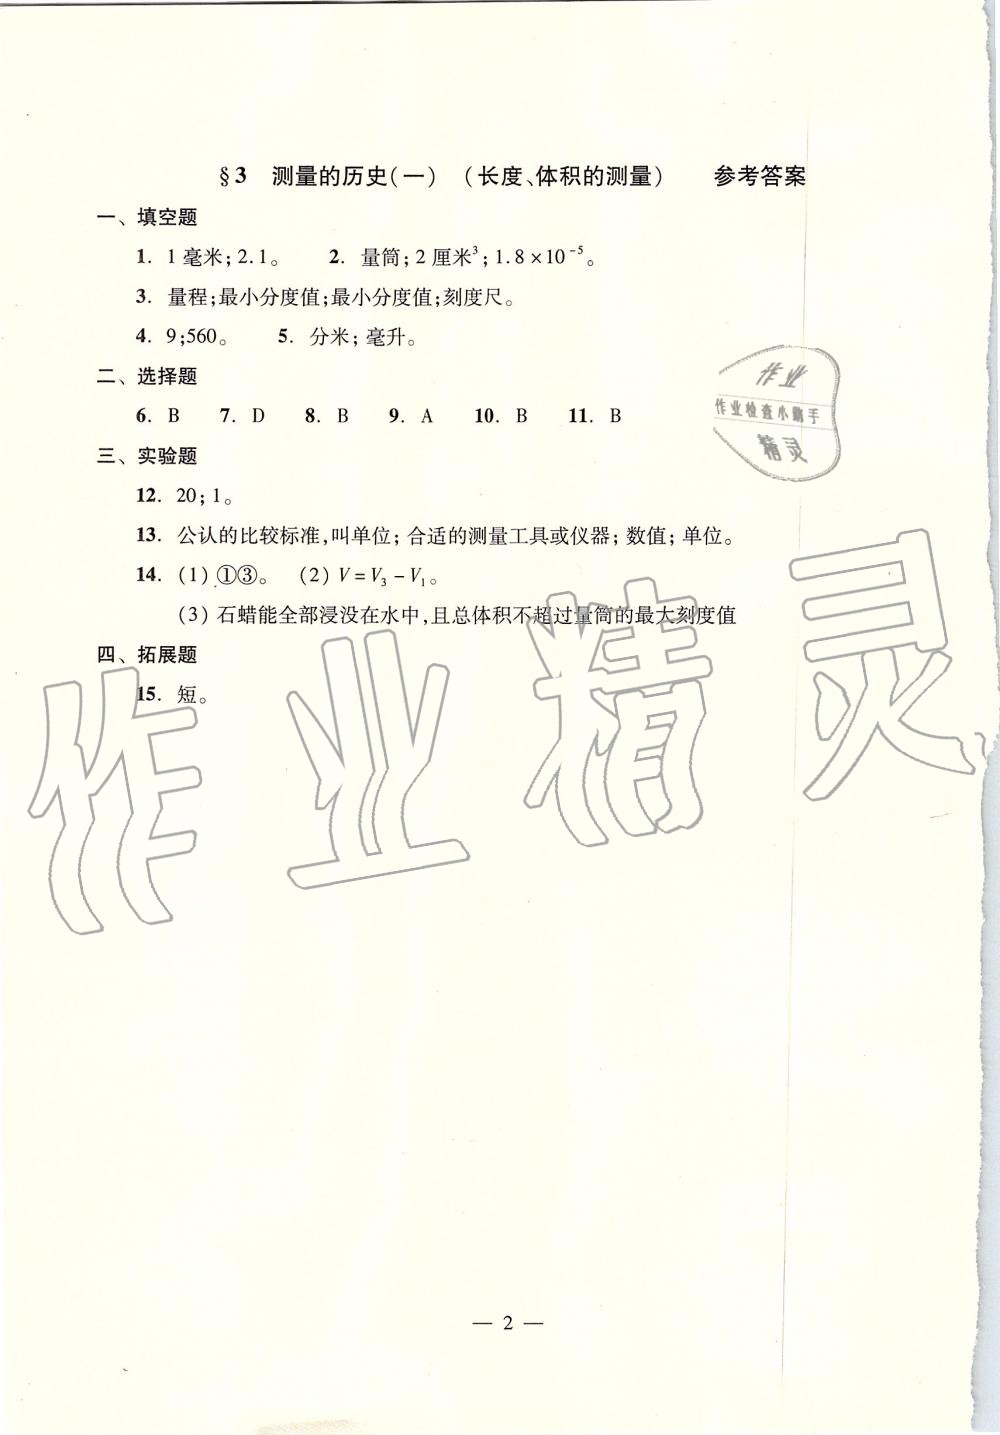 §3 测量的历史(一) (长度、体积的测量) 参考答案
一、填空题
1. 1毫米;2.1。 2. 量筒;2厘米³;1.8×10⁻⁵。
3. 量程;最小分度值;最小分度值;刻度尺。
4. 9;560。 5. 分米;毫升。
二、选择题
6. B 7. D 8. B 9. A 10. B 11. B
三、实验题
12. 20;1。
13. 公认的比较标准,叫单位;合适的测量工具或仪器;数值;单位。
14. (1) ①③。 (2) V=V₃-V₁。
(3) 石蜡能全部浸没在水中,且总体积不超过量筒的最大刻度值
四、拓展题
15. 短。
作业
作业检查小助手
精灵
作业精灵
— 2 —